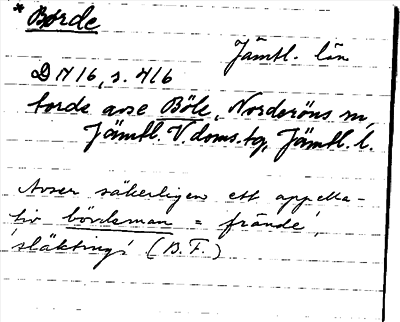 * Borde
Jämtl. län
DN 16, s. 416
torde avse Böle, Norderöns sn,
Jämtl. V. doms. tg, Jämtl. l.
Avser säkerligen ett appella-
tiv bördsman = 'frände',
'släkting' (B.F.)